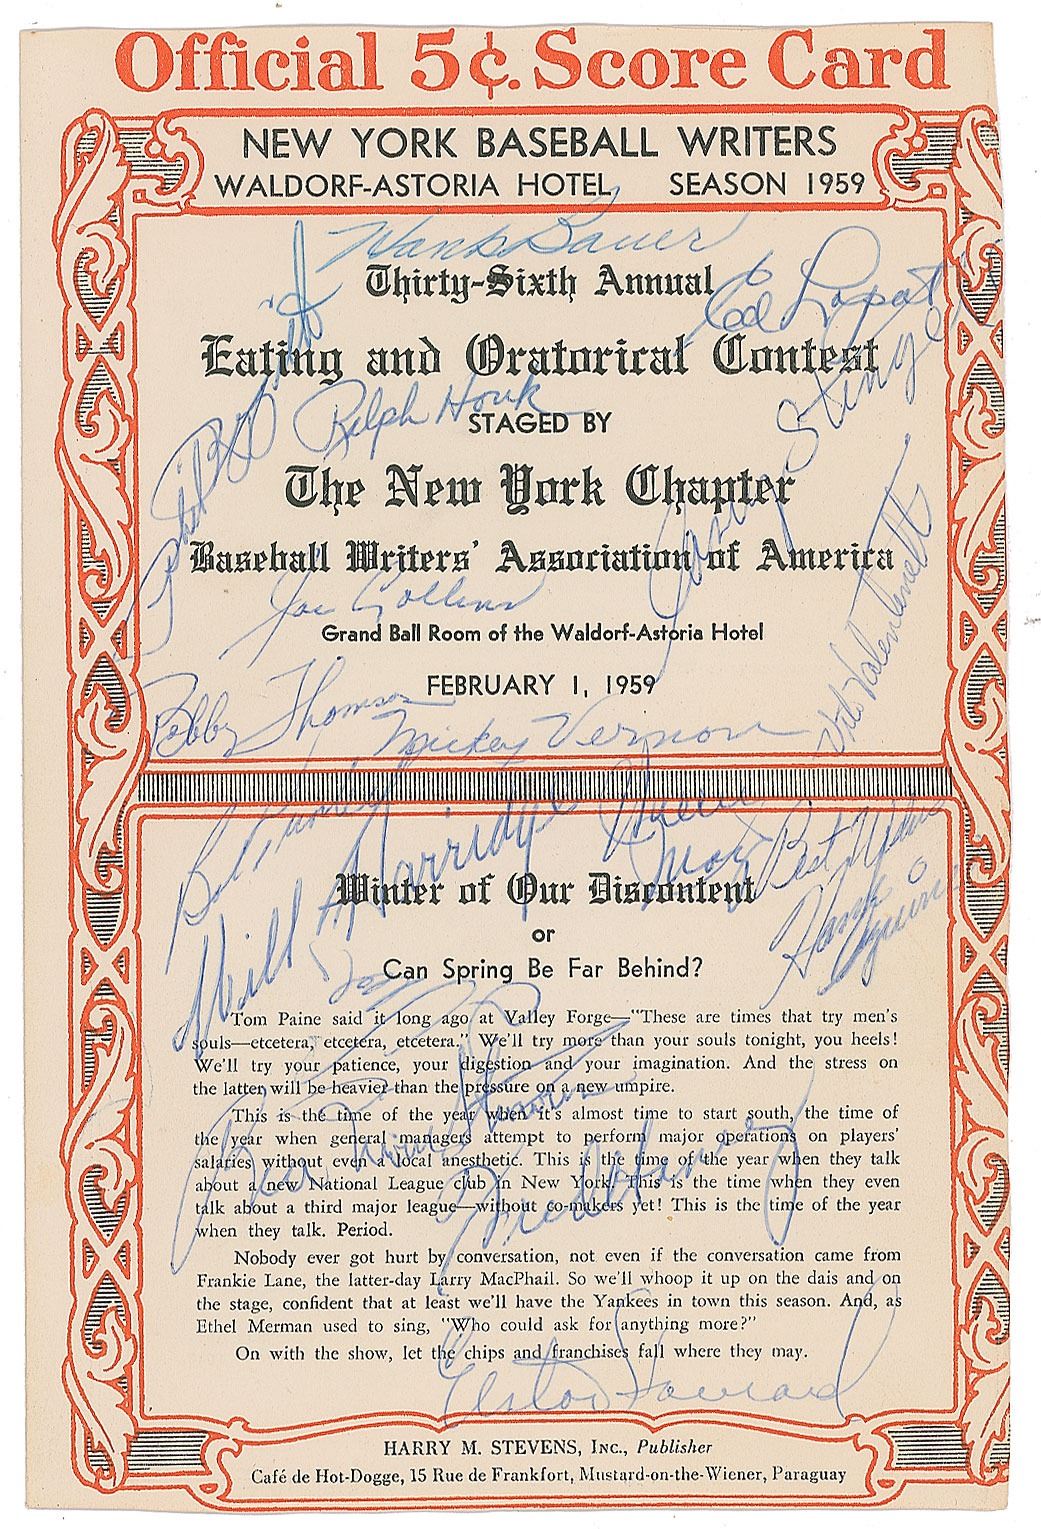 Official 5¢. Score Card
NEW YORK BASEBALL WRITERS
WALDORF-ASTORIA HOTEL SEASON 1959
Hank Bauer
Thirty-Sixth Annual
Ed Lopat
Eating and Oratorical Contest
Casey Stengel
Ralph Houk
STAGED BY
The New York Chapter
Baseball Writers' Association of America
Joe Collins
Grand Ball Room of the Waldorf-Astoria Hotel
FEBRUARY 1, 1959
Bobby Thomson
Mickey Vernon
Will Harridge
Best Wishes
Hank
Winter of Our Discontent
or
Can Spring Be Far Behind?
Tom Paine said it long ago at Valley Forge—"These are times that try men's
souls—etcetera, etcetera, etcetera." We'll try more than your souls tonight, you heels!
We'll try your patience, your digestion and your imagination. And the stress on
the latter will be heavier than the pressure on a new umpire.
This is the time of the year when it's almost time to start south, the time of
the year when general managers attempt to perform major operations on players'
salaries without even a local anesthetic. This is the time of the year when they talk
about a new National League club in New York. This is the time when they even
talk about a third major league—without co-makers yet! This is the time of the year
when they talk. Period.
Nobody ever got hurt by conversation, not even if the conversation came from
Frankie Lane, the latter-day Larry MacPhail. So we'll whoop it up on the dais and on
the stage, confident that at least we'll have the Yankees in town this season. And, as
Ethel Merman used to sing, "Who could ask for anything more?"
On with the show, let the chips and franchises fall where they may.
Elston Howard
HARRY M. STEVENS, INC., Publisher
Café de Hot-Dogge, 15 Rue de Frankfort, Mustard-on-the-Wiener, Paraguay